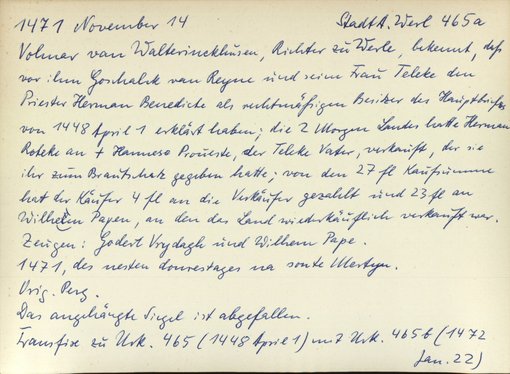 1471 November 14 StadtA. Werl 465a
Volmar van Walterinckhusen, Richter zu Werle, bekennt, daß
vor ihm Goschalck van Reyne und seine Frau Teleke den
Priester Herman Benedicte als rechtmäßigen Besitzer des Hauptbriefes
von 1448 April 1 erklärt haben; die 2 Morgen Landes hatte Herman
Roteke an + Hannese Proueste, der Teleke Vater, verkauft, der sie
ihr zum Brautschatz gegeben hatte; von den 27 fl Kaufsumme
hat der Käufer 4 fl an die Verkäufer gezahlt und 23 fl an
Wilhelm Papen, an den das Land wiederkäuflich verkauft war.
Zeugen: Godert Vrydagh und Wilhem Pape.
1471, des nesten donrestages na sonte Mertyn.
Orig. Perg.
Das angehängte Siegel ist abgefallen.
Transfix zu Urk. 465 (1448 April 1) mit Urk. 465b (1472
Jan. 22)